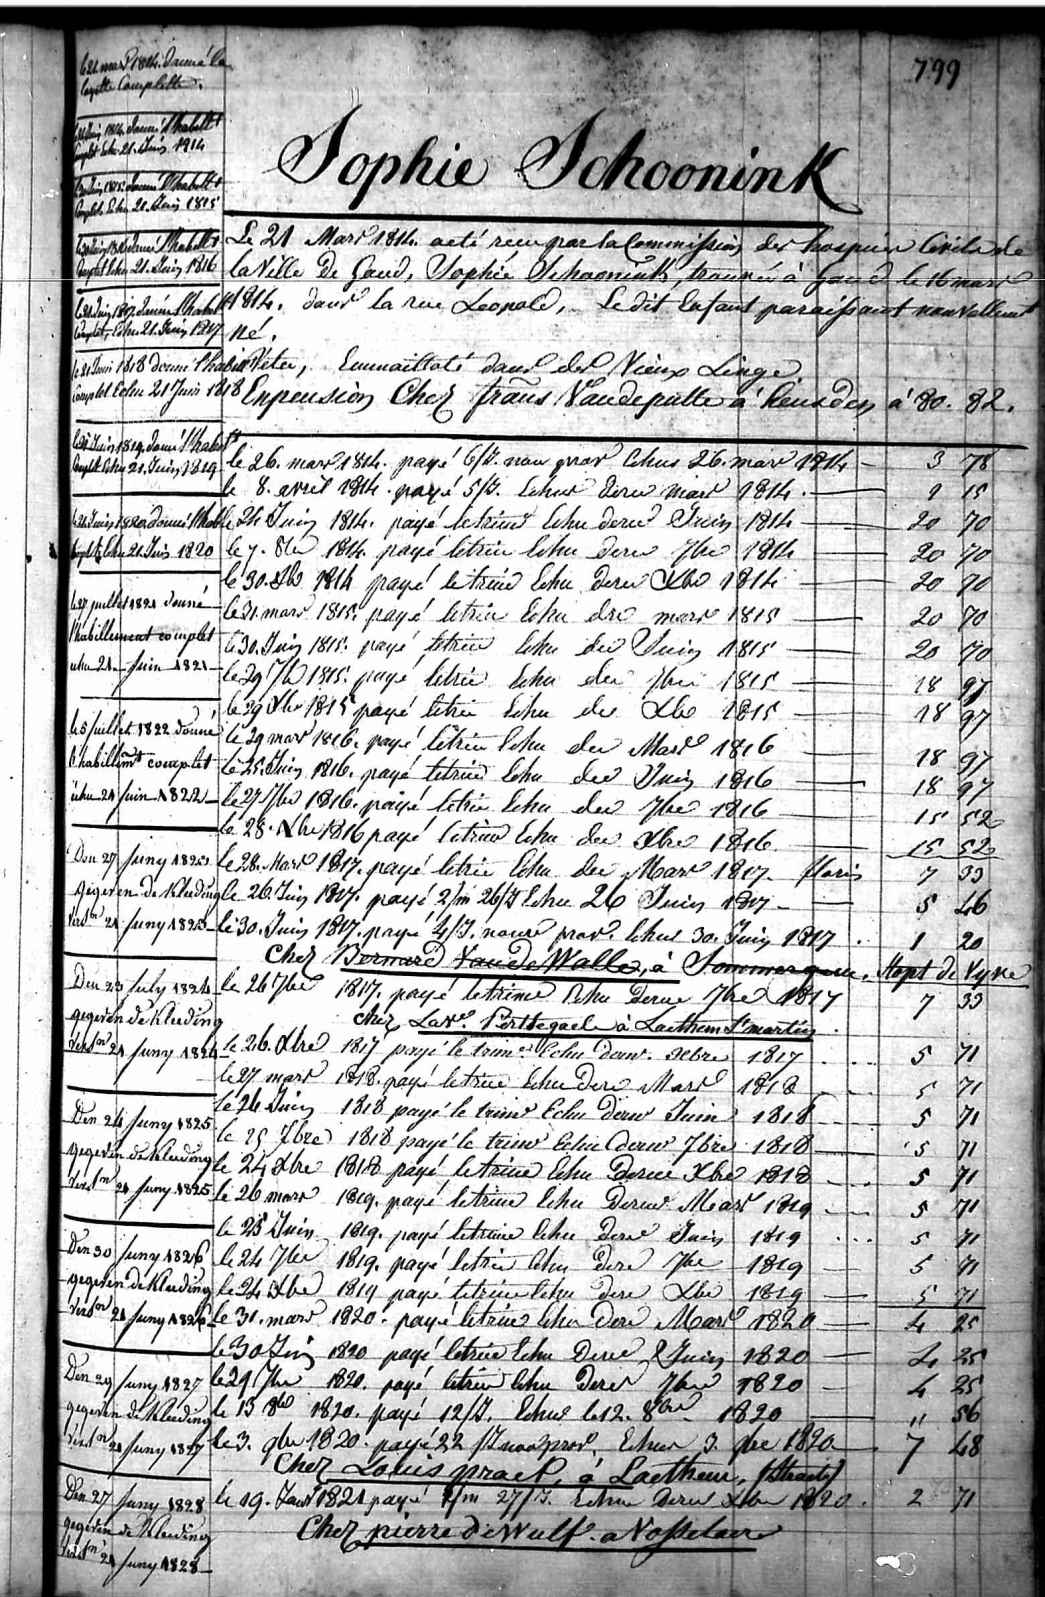 799
Le 21 mars 1814. donné la
layette Complette.
le 21 Juin 1814. donné l'habillt
Complet Echu 21. Juin 1814
le 21 Juin 1815. donné l'habillt
Complet Echu 21. Juin 1815
donné l'habillt
Complet Echu 21. Juin 1816
le 21 Juin 1817. donné l'habillt
Complet, Echu 21. Juin 1817
le 21 Juin 1818 donné l'habillt
Complet Echu 21 Juin 1818
le 21 Juin 1819. donné l'habillt
Complet Echu 21. Juin 1819
le 21 Juin 1820. donné l'habillt
Complet Echu 21. Juin 1820
le 27 juillet 1821 donné
l'habillement complet
échu 21 Juin 1821
le 5 juillet 1822 donné
l'habillmt complet
échu 21 juin 1822
Den 27 Juny 1823
gegeven de Kleeding
verstn 21 Juny 1823
Den 23 July 1824
gegeven de Kleeding
verstn 21 Juny 1824
Den 24 Juny 1825
gegeven de Kleeding
verstn 21 Juny 1825
Den 30 Juny 1826
gegeven de Kleeding
verstn 21 Juny 1826
Den 29 Juny 1827
gegeven de Kleeding
verstn 21 Juny 1827
Den 27 Juny 1828
gegeven de Kleeding
verstn 21 Juny 1828
Sophie Schoonink
Le 21 Mars 1814. acté reçu par la Commission des hospices Civils de
la Ville de Gand, Sophie Schoonink, trouvée à Gand le 16 mars
1814. dans la rue Léopold, Le dit Enfant paraissant nouvellement
né.
Vêtu, Emmaillotté dans des Vieux Linge
En pension Chez frans Vandeputte à heusden à 80. 82.
le 26. mars 1814. payé 6/J. nour prov Echus 26. mars 1814 3 78
le 8. avril 1814. payé 5/J. Echus deru mars 1814. 15
le 24 Juin 1814. payé le trime Echu deru Juin 1814 20 70
le 7. 8bre 1814. payé le trim Echu deru 7bre 1814 20 70
le 30. Xbre 1814 payé le trime Echu deru Xbre 1814 20 70
le 31. mars 1815. payé le trim Echu dre mars 1815 20 70
le 30. Juin 1815. payé le trim Echu der Juin 1815 20 70
le 29 7bre 1815. payé le trim Echu der 7bre 1815 18 97
le 29 Xbre 1815 payé le trim Echu der Xbre 1815 18 97
le 29 mars 1816. payé le trim Echu der Mars 1816 18 97
le 25. Juin 1816. payé le trime Echu der Juin 1816 18 97
le 27 7bre 1816. payé le trim Echu der 7bre 1816 15 52
le 28. Xbre 1816 payé le trime Echu der Xbre 1816 15 52
le 28. Mars 1817. payé le trim Echu der Mars 1817. florins 7 33
le 26 Juin 1817. payé 2/m 26/J Echu 26 Juin 1817 5 46
le 30. Juin 1817. payé 4/J. nour prov. Echus 30. Juin 1817 1 20
Chez Bernard Van de Walle, à Sommergem, Hopt de Vyve
le 26 7bre 1817. payé le trime Echu Deru 7bre 1817 7 33
chez Laetham St martin
le 26. Xbre 1817 payé le trime Echu deru. Xbre 1817 5 71
le 27 mars 1818. payé le trim Echu Deru Mars 1818 5 71
le 26 Juin 1818 payé le trime Echu Deru Juin 1818 5 71
le 25 7bre 1818 payé le trime Echu Deru 7bre 1818 5 71
le 24 Xbre 1818 payé le trime Echu Deru Xbre 1818 5 71
le 26 mars 1819. payé le trime Echu Deru Mars 1819 5 71
le 25 Juin 1819. payé le trime Echu Deru Juin 1819 5 71
le 24 7bre 1819. payé le trim Echu Deru 7bre 1819 5 71
le 24 Xbre 1819 payé le trime Echu Deru Xbre 1819 5 71
le 31. mars 1820. payé le trime Echu Deru Mars 1820 4 25
le 30 Juin 1820 payé le trime Echu Deru Juin 1820 4 25
le 29 7bre 1820. payé le trime Echu Deru 7bre 1820 4 25
le 13 8bre 1820. payé 12/J. Echus le 12. 8bre 1820 " 56
le 3. 9bre 1820. payé 22 /J nour prov. Echus 3. 9bre 1820 7 48
Chez Louis praet, à Laethem, (Straete)
le 19. Janr 1821 payé 1/m 27/J. Echus Deru Xbre 1820. 2 71
Chez pierre de Wulf. a Vosselaere